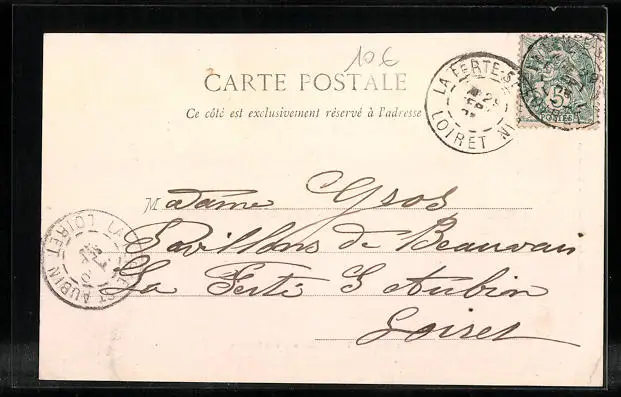 10€
CARTE POSTALE
Ce côté est exclusivement réservé à l'adresse
LA FERTE-ST
LOIRET
5
POSTES
Madame Gros
Pavillons de Beauvais
La Ferté St Aubin
Loiret
LA
ST AUBIN
LOIRET